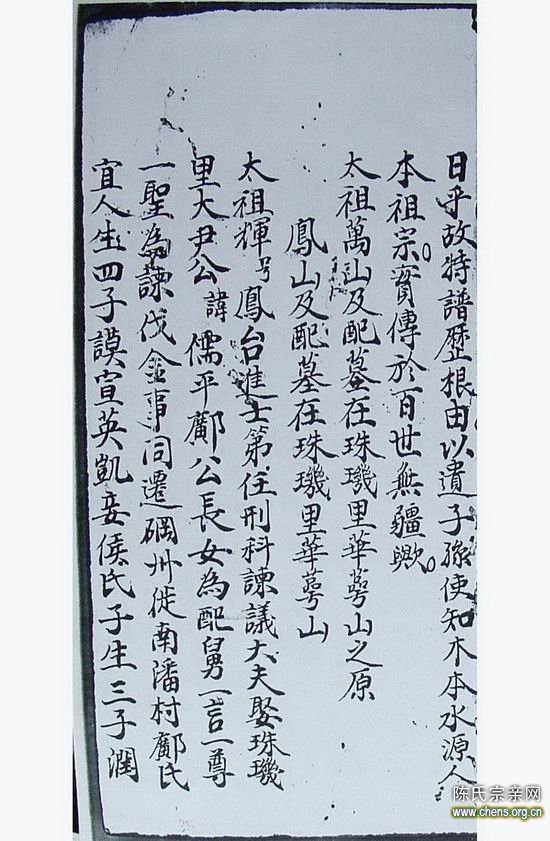 日乎故特譜歷根由以遺子孫使知木本水源人
本祖宗實傳於百世無疆歟
太祖萬山及配墓在珠璣里華萼山之原
鳳山及配墓在珠璣里華萼山
太祖輝号鳳台進士第任刑科諫議大夫娶珠璣
里大尹公諱儒平鄺公長女為配舅一言一尊
一聖為諫伐金事同遷碙州徙南潘村鄺氏
宜人生四子謨宣英凱妾侯氏子生三子潤
陈氏宗亲网
www.chens.org.cn